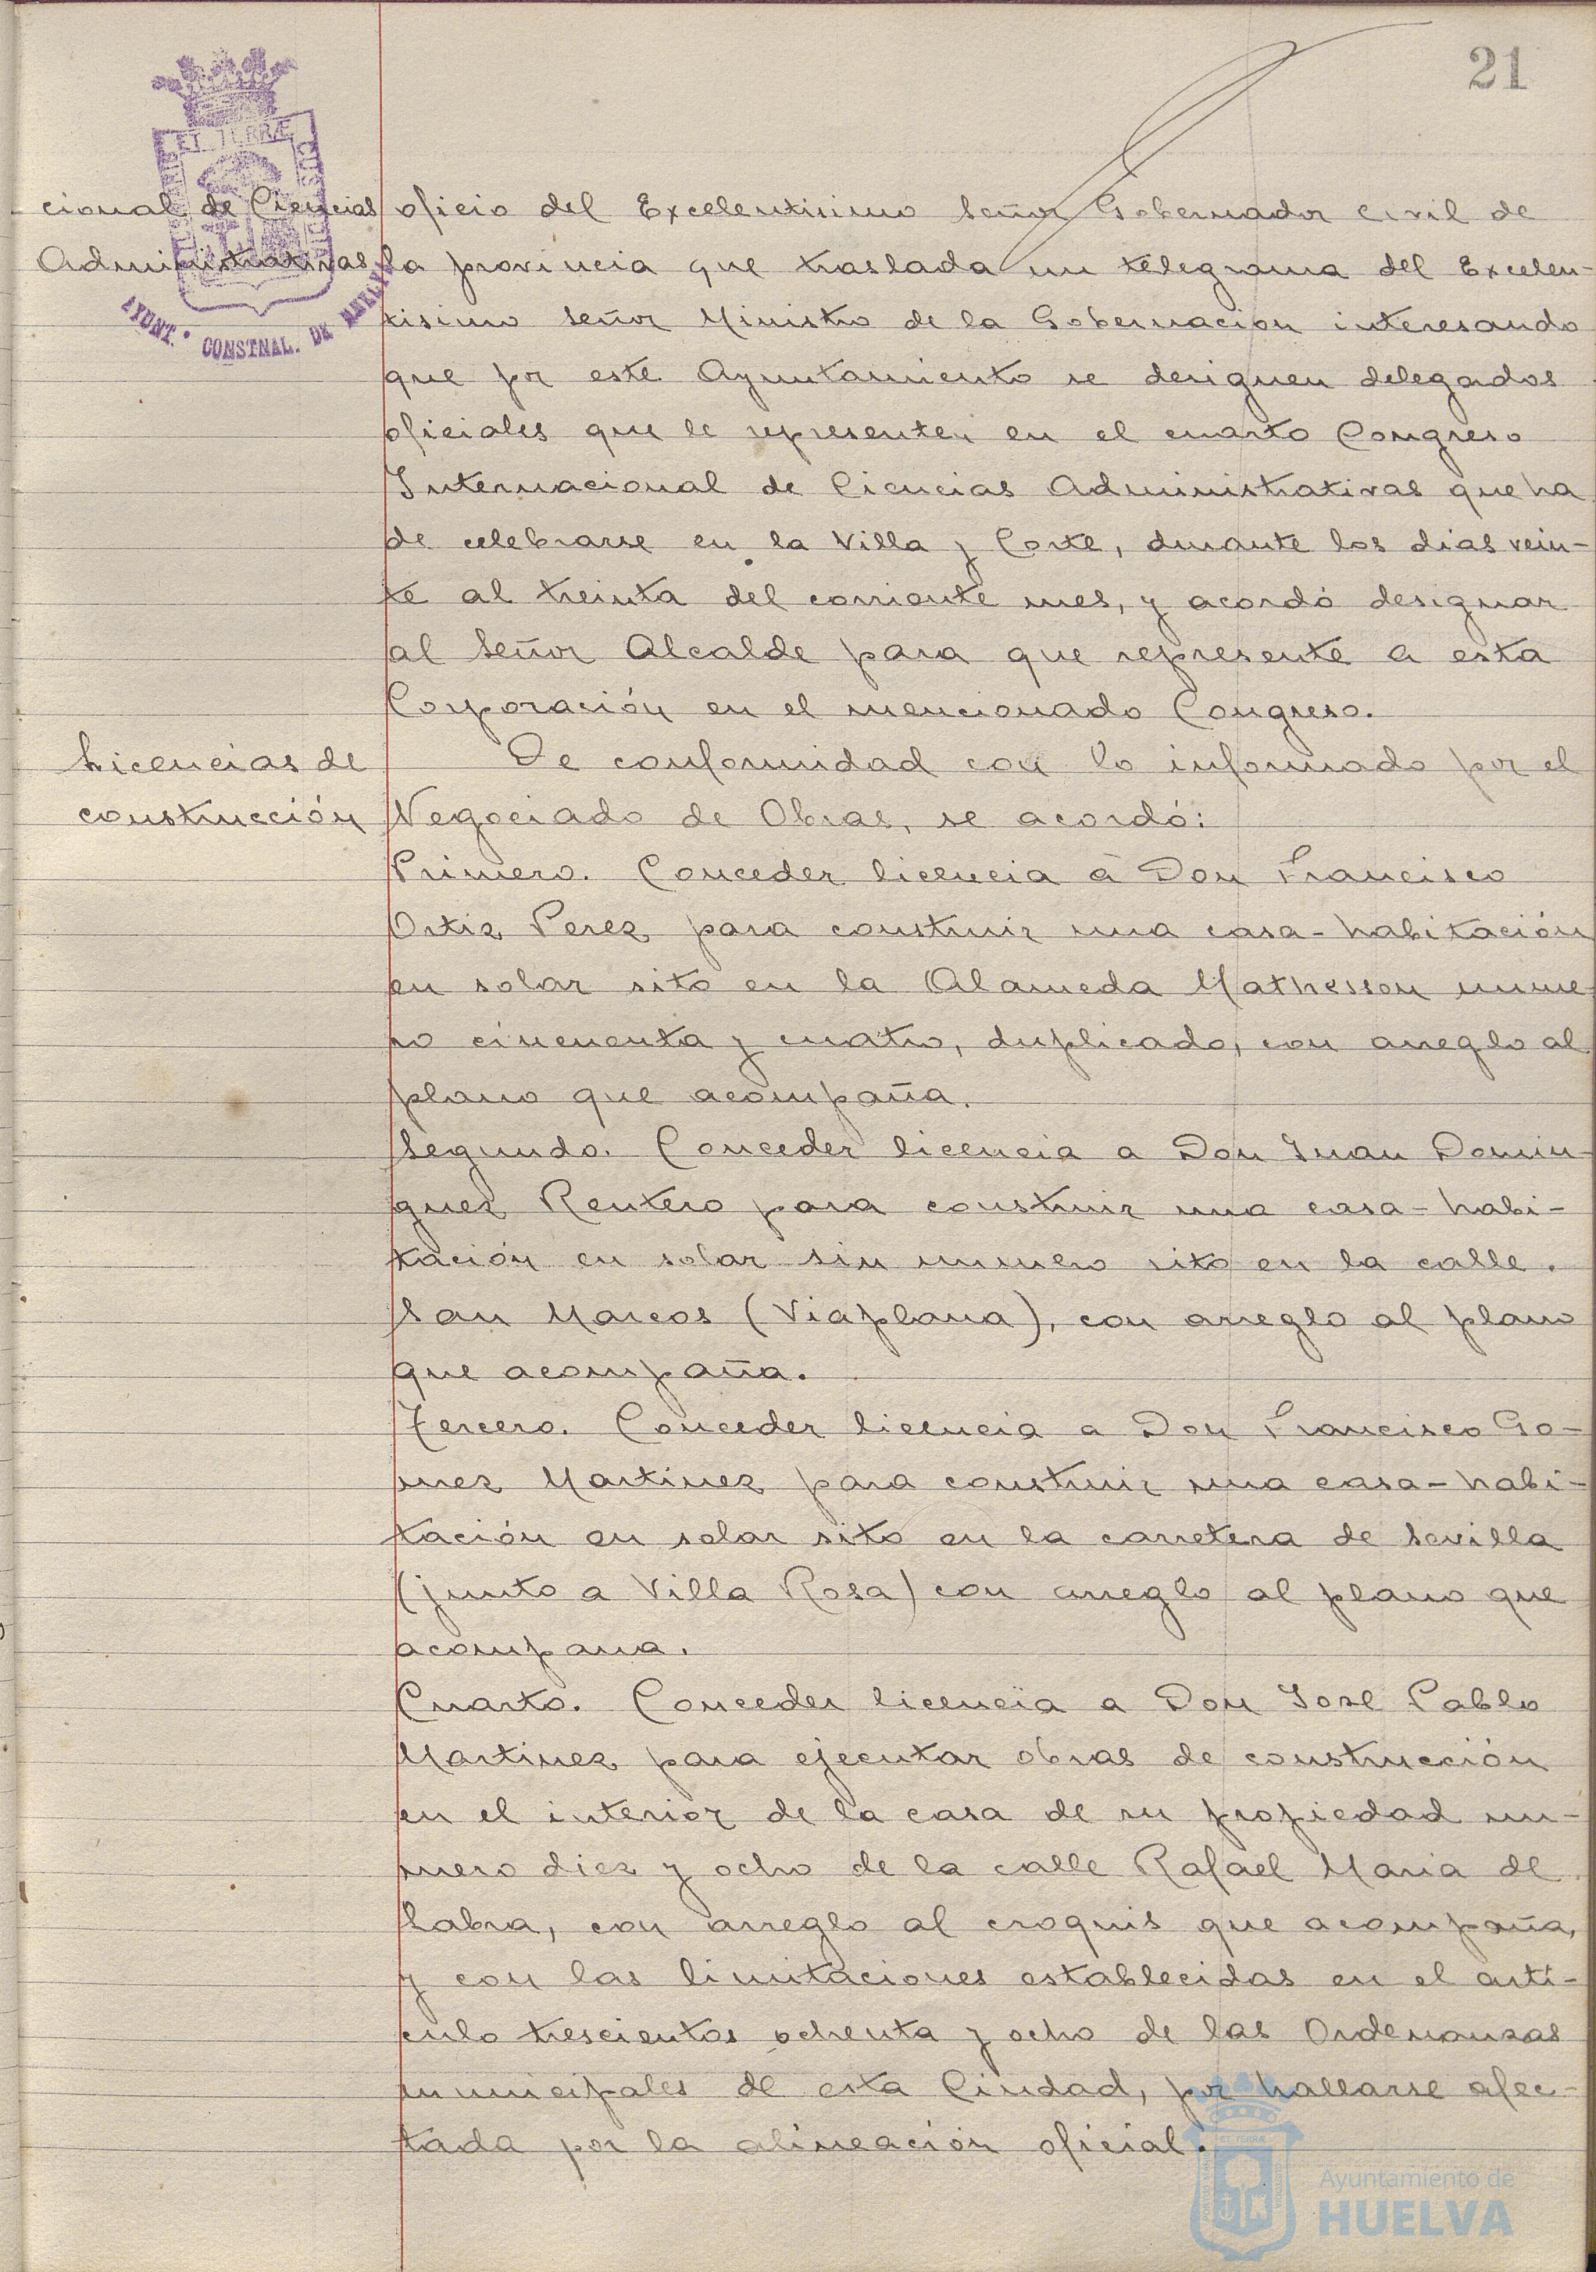 21
cional de Ciencias
Administrativas
oficio del Excelentisimo Señor Gobernador civil de
la provincia que traslada un telegrama del Excelen-
tisimo Señor Ministro de la Gobernacion interesando
que por este Ayuntamiento se designen delegados
oficiales que le representen en el cuarto Congreso
Internacional de Ciencias Administrativas que ha
de celebrarse en la Villa y Corte, durante los dias vein-
te al treinta del corriente mes, y acordó designar
al Señor Alcalde para que represente a esta
Corporación en el mencionado Congreso.
Licencias de
construcción
De conformidad con lo informado por el
Negociado de Obras, se acordó:
Primero. Conceder licencia a Don Francisco
Ortiz Perez para construir una casa-habitación
en solar sito en la Alameda Mathesson nume-
ro cincuenta y cuatro, duplicado, con arreglo al
plano que acompaña.
Segundo. Conceder licencia a Don Juan Domin-
guez Rentero para construir una casa-habi-
tación en solar sin numero sito en la calle
San Marcos (Viaplana), con arreglo al plano
que acompaña.
Tercero. Conceder licencia a Don Francisco Go-
mez Martinez para construir una casa-habi-
tación en solar sito en la carretera de Sevilla
(junto a Villa Rosa) con arreglo al plano que
acompana.
Cuarto. Conceder licencia a Don Jose Pablo
Martinez para ejecutar obras de construcción
en el interior de la casa de su propiedad nu-
mero diez y ocho de la calle Rafael Maria de
Labra, con arreglo al croquis que acompaña,
y con las limitaciones establecidas en el arti-
culo trescientos ochenta y ocho de las Ordenanzas
municipales de esta Ciudad, por hallarse afec-
tada por la alineación oficial.
ET TERRÆ
AYUNT. CONSTNAL. DE HUELVA
Ayuntamiento de
HUELVA